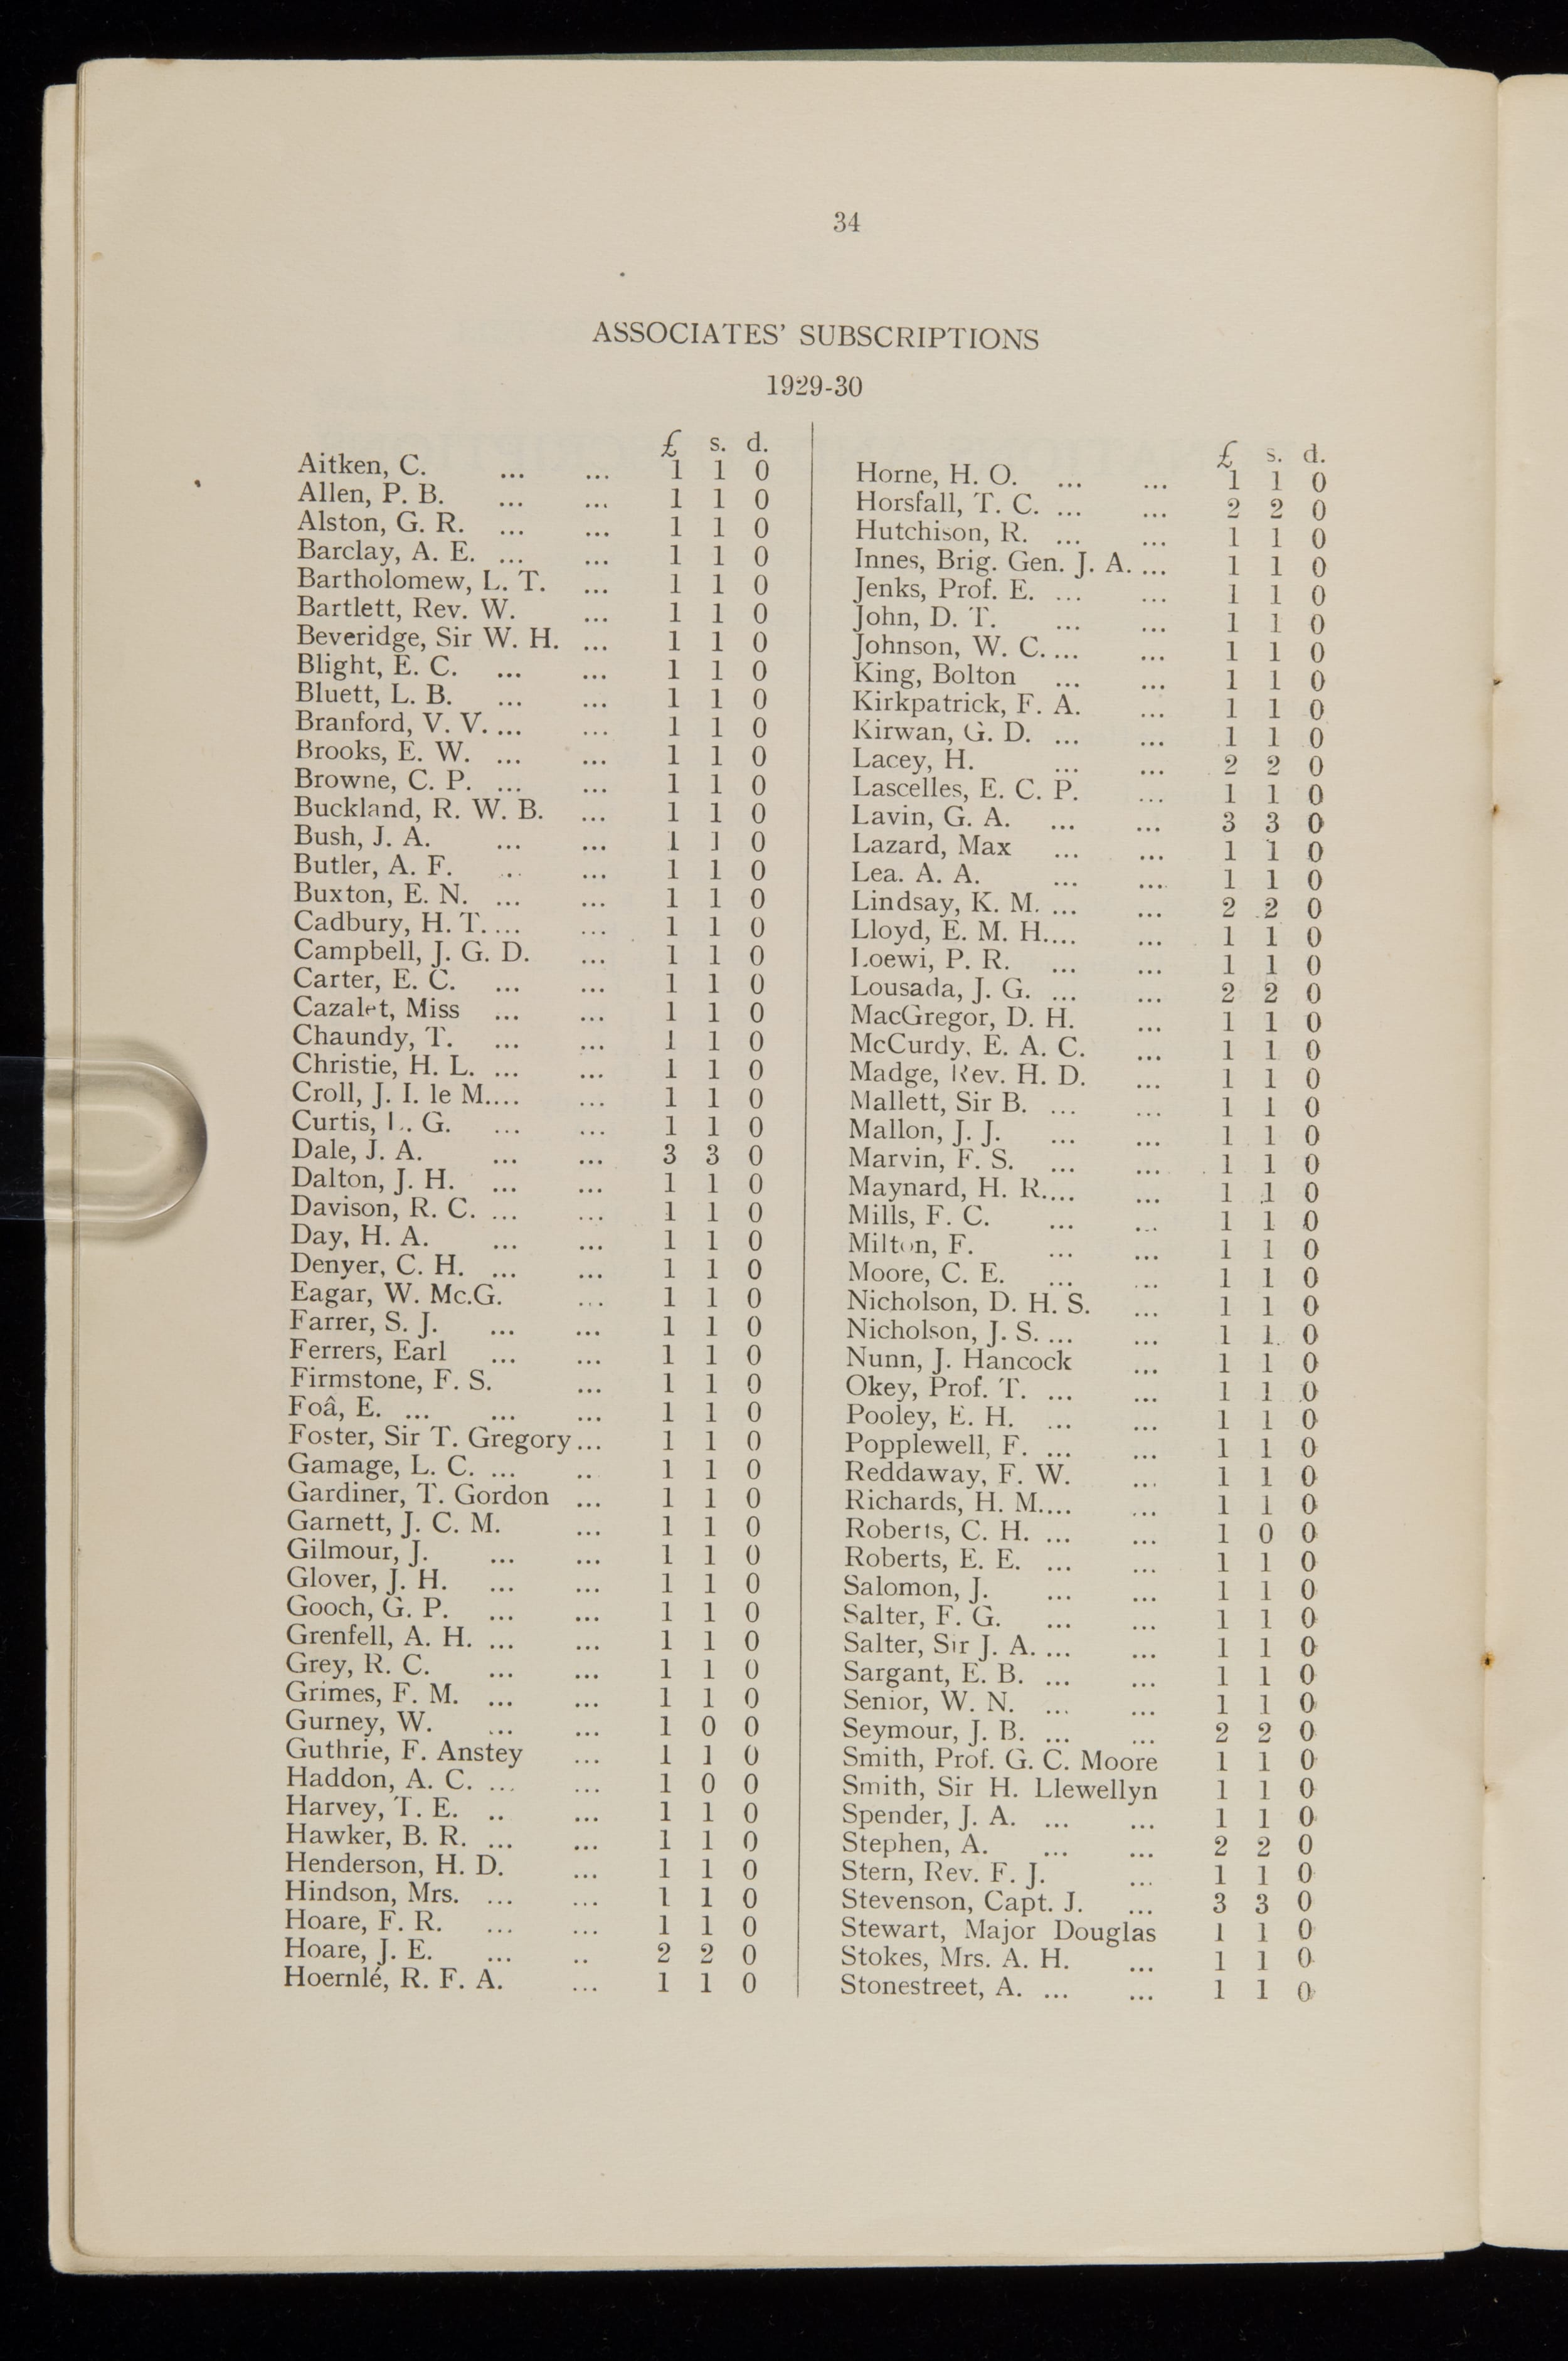 34
ASSOCIATES' SUBSCRIPTIONS
1929-30
£ s. d.
Aitken, C. ... ... 1 1 0
Allen, P. B. ... ... 1 1 0
Alston, G. R. ... ... 1 1 0
Barclay, A. E. ... ... 1 1 0
Bartholomew, L. T. ... 1 1 0
Bartlett, Rev. W. ... 1 1 0
Beveridge, Sir W. H. ... 1 1 0
Blight, E. C. ... ... 1 1 0
Bluett, L. B. ... ... 1 1 0
Branford, V. V. ... ... 1 1 0
Brooks, E. W. ... ... 1 1 0
Browne, C. P. ... ... 1 1 0
Buckland, R. W. B. ... 1 1 0
Bush, J. A. ... ... 1 1 0
Butler, A. F. ... ... 1 1 0
Buxton, E. N. ... ... 1 1 0
Cadbury, H. T. ... ... 1 1 0
Campbell, J. G. D. ... 1 1 0
Carter, E. C. ... ... 1 1 0
Cazalet, Miss ... ... 1 1 0
Chaundy, T. ... ... 1 1 0
Christie, H. L. ... ... 1 1 0
Croll, J. I. le M.... ... 1 1 0
Curtis, L. G. ... ... 1 1 0
Dale, J. A. ... ... 3 3 0
Dalton, J. H. ... ... 1 1 0
Davison, R. C. ... ... 1 1 0
Day, H. A. ... ... 1 1 0
Denyer, C. H. ... ... 1 1 0
Eagar, W. Mc.G. ... 1 1 0
Farrer, S. J. ... ... 1 1 0
Ferrers, Earl ... ... 1 1 0
Firmstone, F. S. ... 1 1 0
Foâ, E. ... ... ... 1 1 0
Foster, Sir T. Gregory ... 1 1 0
Gamage, L. C. ... .. 1 1 0
Gardiner, T. Gordon ... 1 1 0
Garnett, J. C. M. ... 1 1 0
Gilmour, J. ... ... 1 1 0
Glover, J. H. ... ... 1 1 0
Gooch, G. P. ... ... 1 1 0
Grenfell, A. H. ... ... 1 1 0
Grey, R. C. ... ... 1 1 0
Grimes, F. M. ... ... 1 1 0
Gurney, W. ... ... 1 0 0
Guthrie, F. Anstey ... 1 1 0
Haddon, A. C. ... ... 1 0 0
Harvey, T. E. .. ... 1 1 0
Hawker, B. R. ... ... 1 1 0
Henderson, H. D. ... 1 1 0
Hindson, Mrs. ... ... 1 1 0
Hoare, F. R. ... ... 1 1 0
Hoare, J. E. ... .. 2 2 0
Hoernlé, R. F. A. ... 1 1 0
£ s. d.
Horne, H. O. ... ... 1 1 0
Horsfall, T. C. ... ... 2 2 0
Hutchison, R. ... ... 1 1 0
Innes, Brig. Gen. J. A. ... 1 1 0
Jenks, Prof. E. ... ... 1 1 0
John, D. T. ... ... 1 1 0
Johnson, W. C. ... ... 1 1 0
King, Bolton ... ... 1 1 0
Kirkpatrick, F. A. ... 1 1 0
Kirwan, G. D. ... ... 1 1 0
Lacey, H. ... ... 2 2 0
Lascelles, E. C. P. ... 1 1 0
Lavin, G. A. ... ... 3 3 0
Lazard, Max ... ... 1 1 0
Lea. A. A. ... .... 1 1 0
Lindsay, K. M. ... ... 2 2 0
Lloyd, E. M. H.... ... 1 1 0
Loewi, P. R. ... ... 1 1 0
Lousada, J. G. ... ... 2 2 0
MacGregor, D. H. ... 1 1 0
McCurdy, E. A. C. ... 1 1 0
Madge, Rev. H. D. ... 1 1 0
Mallett, Sir B. ... ... 1 1 0
Mallon, J. J. ... ... 1 1 0
Marvin, F. S. ... ... 1 1 0
Maynard, H. R.... ... 1 1 0
Mills, F. C. ... ... 1 1 0
Milton, F. ... ... 1 1 0
Moore, C. E. ... ... 1 1 0
Nicholson, D. H. S. ... 1 1 0
Nicholson, J. S. ... ... 1 1 0
Nunn, J. Hancock ... 1 1 0
Okey, Prof. T. ... ... 1 1 0
Pooley, E. H. ... ... 1 1 0
Popplewell, F. ... ... 1 1 0
Reddaway, F. W. ... 1 1 0
Richards, H. M.... ... 1 1 0
Roberts, C. H. ... ... 1 0 0
Roberts, E. E. ... ... 1 1 0
Salomon, J. ... ... 1 1 0
Salter, F. G. ... ... 1 1 0
Salter, Sir J. A. ... ... 1 1 0
Sargant, E. B. ... ... 1 1 0
Senior, W. N. ... ... 1 1 0
Seymour, J. B. ... ... 2 2 0
Smith, Prof. G. C. Moore 1 1 0
Smith, Sir H. Llewellyn 1 1 0
Spender, J. A. ... ... 1 1 0
Stephen, A. ... ... 2 2 0
Stern, Rev. F. J. ... 1 1 0
Stevenson, Capt. J. ... 3 3 0
Stewart, Major Douglas 1 1 0
Stokes, Mrs. A. H. ... 1 1 0
Stonestreet, A. ... ... 1 1 0